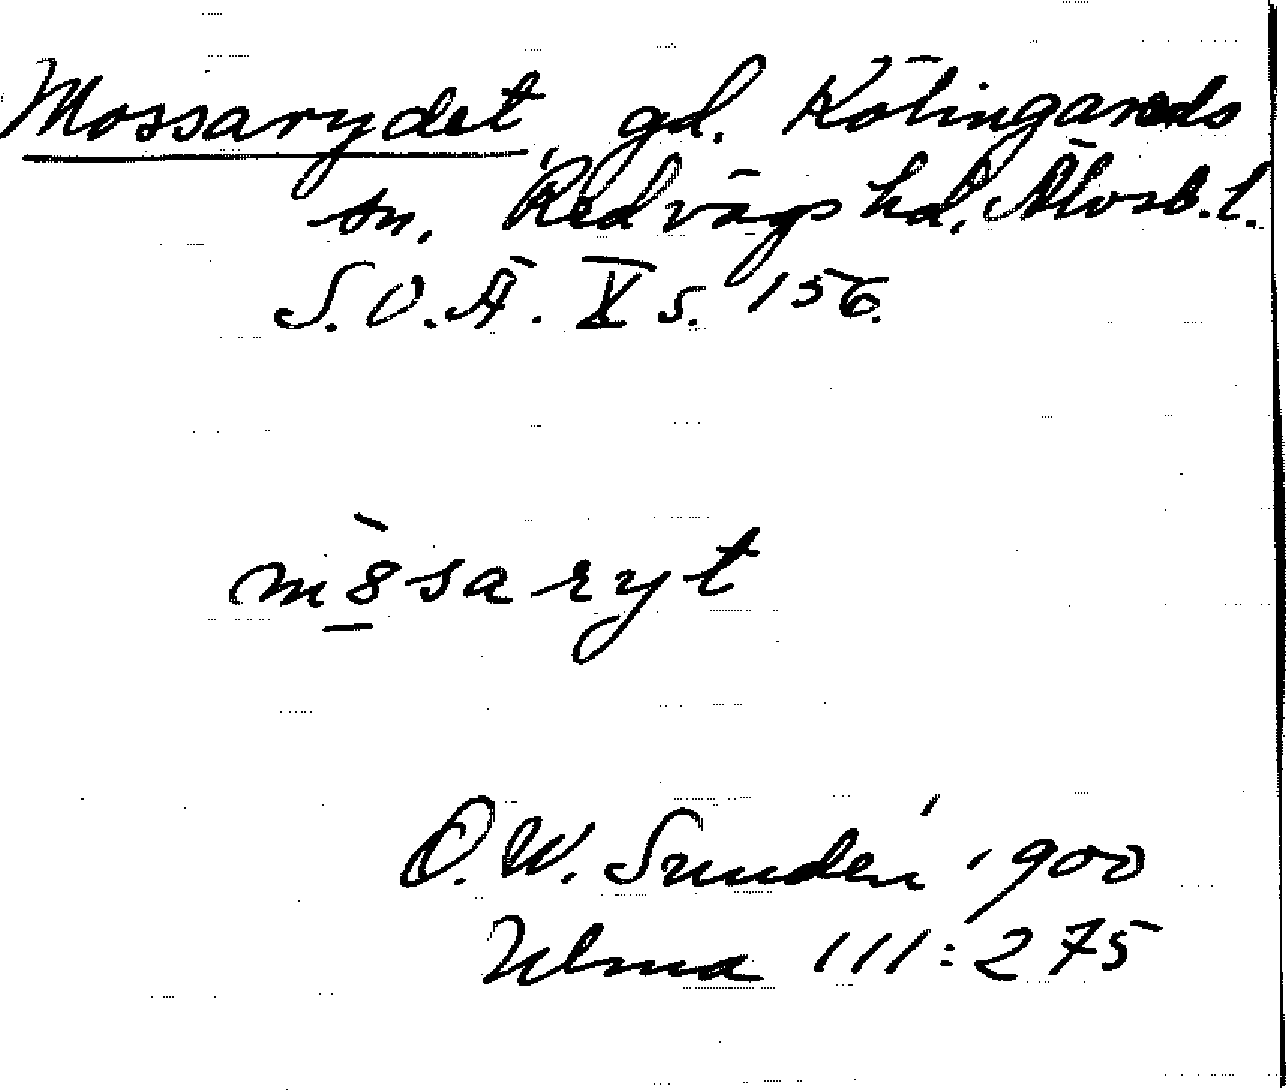 Mossarydet gd. Kölingareds
sn. Redvägs hd. Älvsb. l.
S.O.Ä. X s. 156.
m8̀saryt
O.W. Sundén 1900
Ulma 111:275